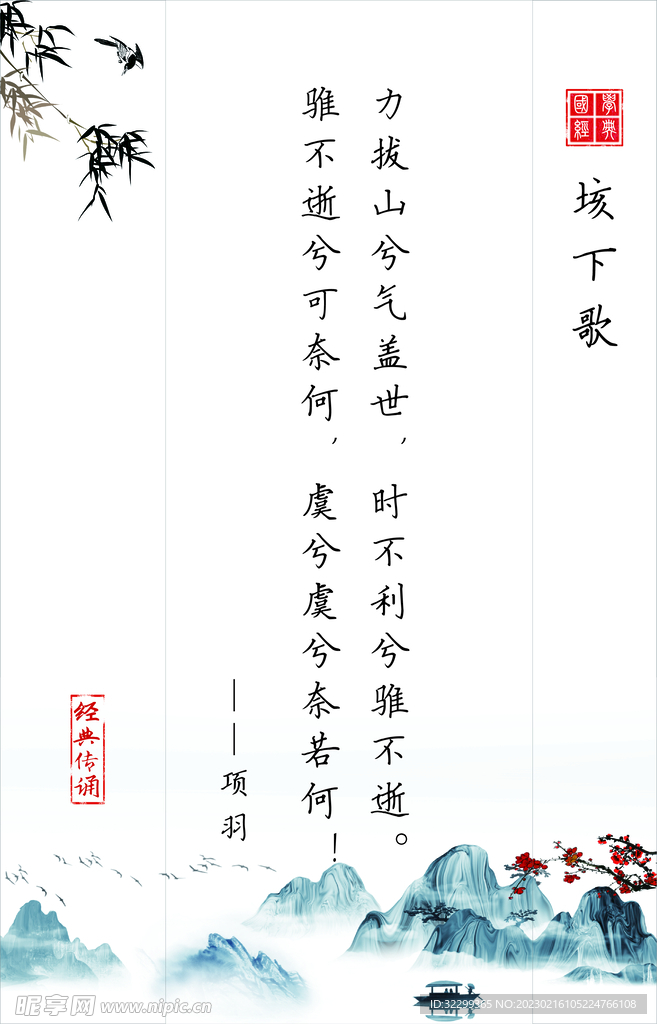 國學經典
垓下歌
力拔山兮气盖世，时不利兮骓不逝。
骓不逝兮可奈何，虞兮虞兮奈若何！
——项羽
经典传诵
昵享网 www.nipic.cn
ID:32299365 NO:20230216105224766108